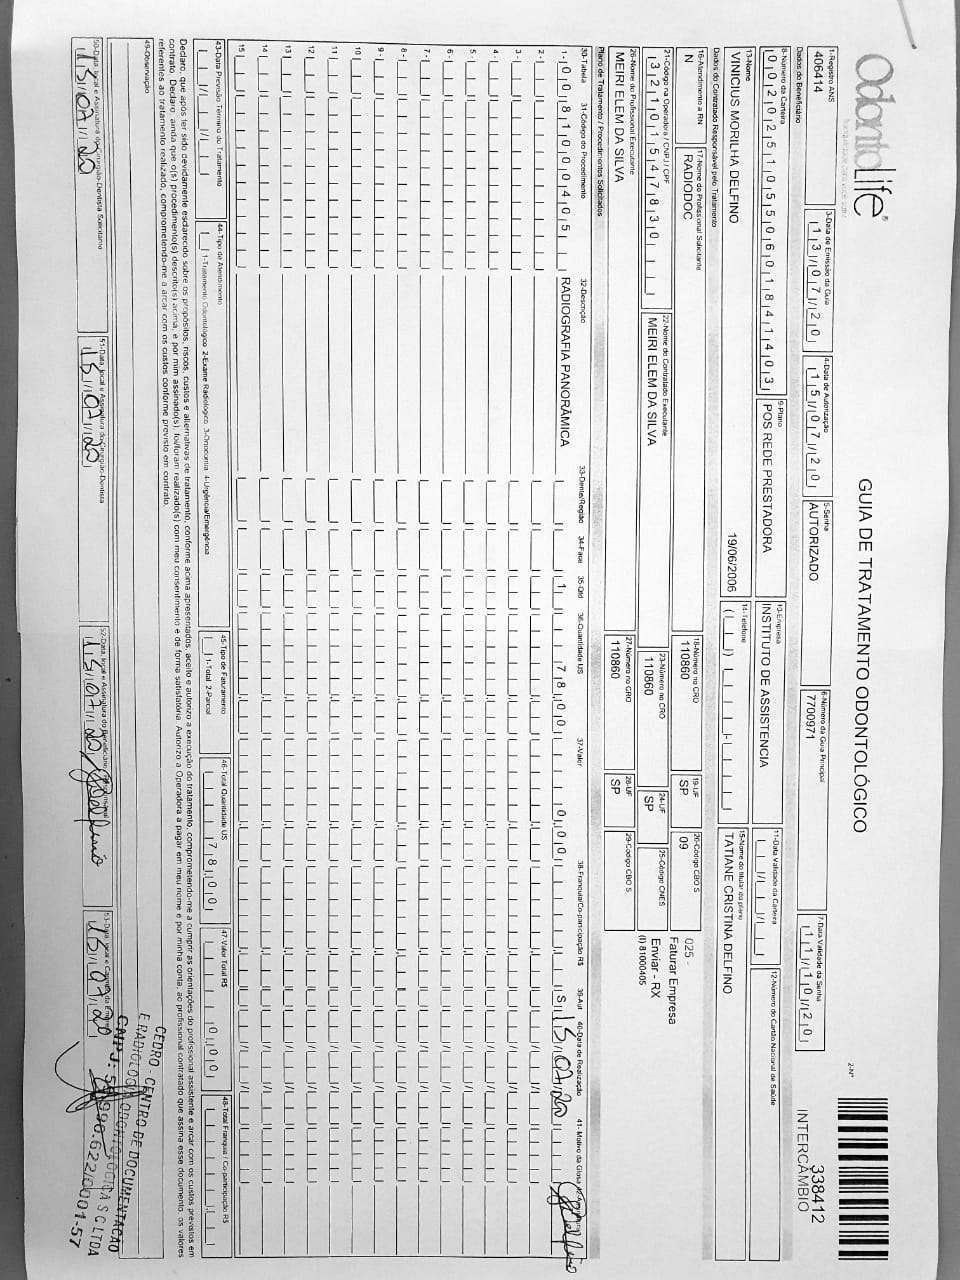 OdontoLife®
GUIA DE TRATAMENTO ODONTOLÓGICO
2-Nº
338412
INTERCÂMBIO
1-Registro ANS
406414
3-Data de Emissão da Guia
13/07/20
4-Data de Autorização
15/07/20
5-Senha
AUTORIZADO
6-Número da Guia Principal
7700971
7-Data Validade da Senha
11/10/20
Dados do Beneficiário
8-Número da Carteira
00202510550601841403
9-Plano
POS REDE PRESTADORA
10-Empresa
INSTITUTO DE ASSISTENCIA
11-Data Validade da Carteira
12-Número do Cartão Nacional de Saúde
13-Nome
VINICIUS MORILHA DELFINO
19/06/2006
14-Telefone
15-Nome do titular do plano
TATIANE CRISTINA DELFINO
Dados do Contratado Responsável pelo Tratamento
16-Atendimento a RN
N
17-Nome do Profissional Solicitante
RADIODOC
18-Número no CRO
110860
19-UF
SP
20-Código CBO S
09
025 -
Faturar Empresa
Enviar - RX
(I) 81000405
21-Código na Operadora / CNPJ / CPF
32101547830
22-Nome do Contratado Executante
MEIRI ELEM DA SILVA
23-Número no CRO
110860
24-UF
SP
25-Código CNES
26-Nome do Profissional Executante
MEIRI ELEM DA SILVA
27-Número no CRO
110860
28-UF
SP
29-Código CBO S
Plano de Tratamento / Procedimentos Solicitados
30-Tabela 31-Código do Procedimento 32-Descrição 33-Dente/Região 34-Face 35-Qtd 36-Quantidade US 37-Valor 38-Franquia/Co-participação R$ 39-Aut 40-Data de Realização 41- Motivo da Glosa
1- 00 81000405 RADIOGRAFIA PANORÂMICA 1 78,00 0,00 S 15/07/20
2-
3-
4-
5-
6-
7-
8-
9-
10
11
12
13
14
15
43-Data Previsão Término do Tratamento
44-Tipo de Atendimento
1-Tratamento Odontológico 2-Exame Radiológico 3-Ortodontia 4-Urgência/Emergência
45-Tipo de Faturamento
1-Total 2-Parcial
46-Total Quantidade US
78,00
47-Valor Total R$
0,00
48-Total Franquia / Co-participação R$
Declaro, que após ter sido devidamente esclarecido sobre os propósitos, riscos, custos e alternativas de tratamento, conforme acima apresentados, aceito e autorizo a execução do tratamento, comprometendo-me a cumprir as orientações do profissional assistente e arcar com os custos previstos em
contrato. Declaro, ainda que o(s) procedimento(s) descrito(s) acima, e por mim assinado(s), foi/foram realizado(s) com meu consentimento e de forma satisfatória. Autorizo a Operadora a pagar em meu nome e por minha conta, ao profissional contratado que assina esse documento, os valores
referentes ao tratamento realizado, comprometendo-me a arcar com os custos conforme previsto em contrato.
49-Observação
50-Data, local e Assinatura do Cirurgião-Dentista Solicitante
15/07/20
51-Data, local e Assinatura do Cirurgião-Dentista
15/07/20
52-Data, local e Assinatura do Beneficiário
15/07/20 Delfino
53-Data, local e Carimbo da Empresa
15/07/20
CEDRO - CENTRO DE DOCUMENTAÇÃO
E RADIOLOGIA ODONTOLÓGICA S C LTDA